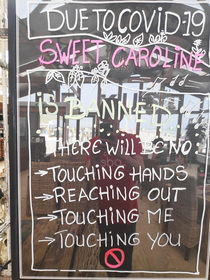 DUE TO COVID-19
SWEET CAROLINE
iS BANNED
THERE WILL BE NO:
→TOUCHING HANDS
→REACHING OUT
→TOUCHING ME
→TOUCHING YOU